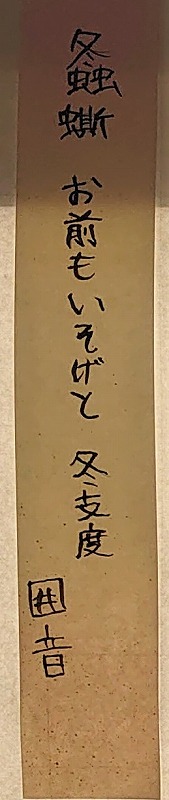 螽蟖 お前もいそげと 冬支度
囲音